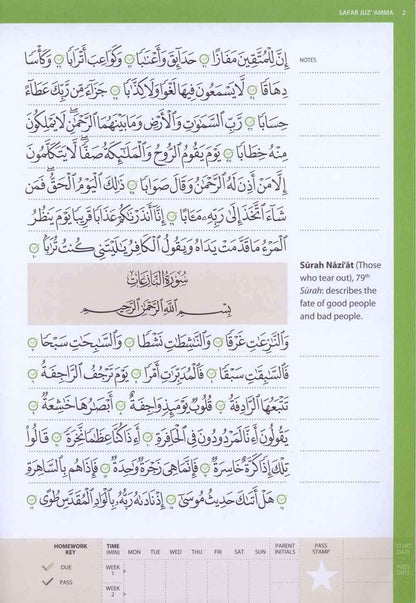 SAFAR JUZ' 'AMMA 2
إِنَّ لِلْمُتَّقِينَ مَفَازًا ٣١ حَدَآئِقَ وَأَعْنَٰبًا ٣٢ وَكَوَاعِبَ أَتْرَابًا ٣٣ وَكَأْسًا
NOTES
دِهَاقًا ٣٤ لَّا يَسْمَعُونَ فِيهَا لَغْوًا وَلَا كِذَّٰبًا ٣٥ جَزَآءً مِّن رَّبِّكَ عَطَآءً
حِسَابًا ٣٦ رَّبِّ ٱلسَّمَٰوَٰتِ وَٱلْأَرْضِ وَمَا بَيْنَهُمَا ٱلرَّحْمَٰنِ ۖ لَا يَمْلِكُونَ
مِنْهُ خِطَابًا ٣٧ يَوْمَ يَقُومُ ٱلرُّوحُ وَٱلْمَلَٰٓئِكَةُ صَفًّا ۖ لَّا يَتَكَلَّمُونَ
إِلَّا مَنْ أَذِنَ لَهُ ٱلرَّحْمَٰنُ وَقَالَ صَوَابًا ٣٨ ذَٰلِكَ ٱلْيَوْمُ ٱلْحَقُّ ۖ فَمَن
شَآءَ ٱتَّخَذَ إِلَىٰ رَبِّهِۦ مَـَٔابًا ٣٩ إِنَّآ أَنذَرْنَٰكُمْ عَذَابًا قَرِيبًا يَوْمَ يَنظُرُ
ٱلْمَرْءُ مَا قَدَّمَتْ يَدَاهُ وَيَقُولُ ٱلْكَافِرُ يَٰلَيْتَنِى كُنتُ تُرَٰبًۢا ٤٠
سُورَةُ النَّازِعَاتِ
بِسْمِ ٱللَّهِ ٱلرَّحْمَٰنِ ٱلرَّحِيمِ
Sūrah Nāzi'āt (Those
who tear out), 79th
Sūrah: describes the
fate of good people
and bad people.
وَٱلنَّٰزِعَٰتِ غَرْقًا ١ وَٱلنَّٰشِطَٰتِ نَشْطًا ٢ وَٱلسَّٰبِحَٰتِ سَبْحًا ٣
فَٱلسَّٰبِقَٰتِ سَبْقًا ٤ فَٱلْمُدَبِّرَٰتِ أَمْرًا ٥ يَوْمَ تَرْجُفُ ٱلرَّاجِفَةُ ٦
تَتْبَعُهَا ٱلرَّادِفَةُ ٧ قُلُوبٌ يَوْمَئِذٍ وَاجِفَةٌ ٨ أَبْصَٰرُهَا خَٰشِعَةٌ ٩
يَقُولُونَ أَءِنَّا لَمَرْدُودُونَ فِى ٱلْحَافِرَةِ ١٠ أَءِذَا كُنَّا عِظَٰمًا نَّخِرَةً ١١ قَالُوا۟
تِلْكَ إِذًا كَرَّةٌ خَاسِرَةٌ ١٢ فَإِنَّمَا هِىَ زَجْرَةٌ وَٰحِدَةٌ ١٣ فَإِذَا هُم بِٱلسَّاهِرَةِ
١٤ هَلْ أَتَىٰكَ حَدِيثُ مُوسَىٰٓ ١٥ إِذْ نَادَىٰهُ رَبُّهُۥ بِٱلْوَادِ ٱلْمُقَدَّسِ طُوًى ١٦
HOMEWORK KEY TIME (MIN) MON TUE WED THU FRI SAT SUN PARENT INITIALS PASS STAMP START DATE
DUE WEEK 1 PASS DATE
PASS WEEK 2